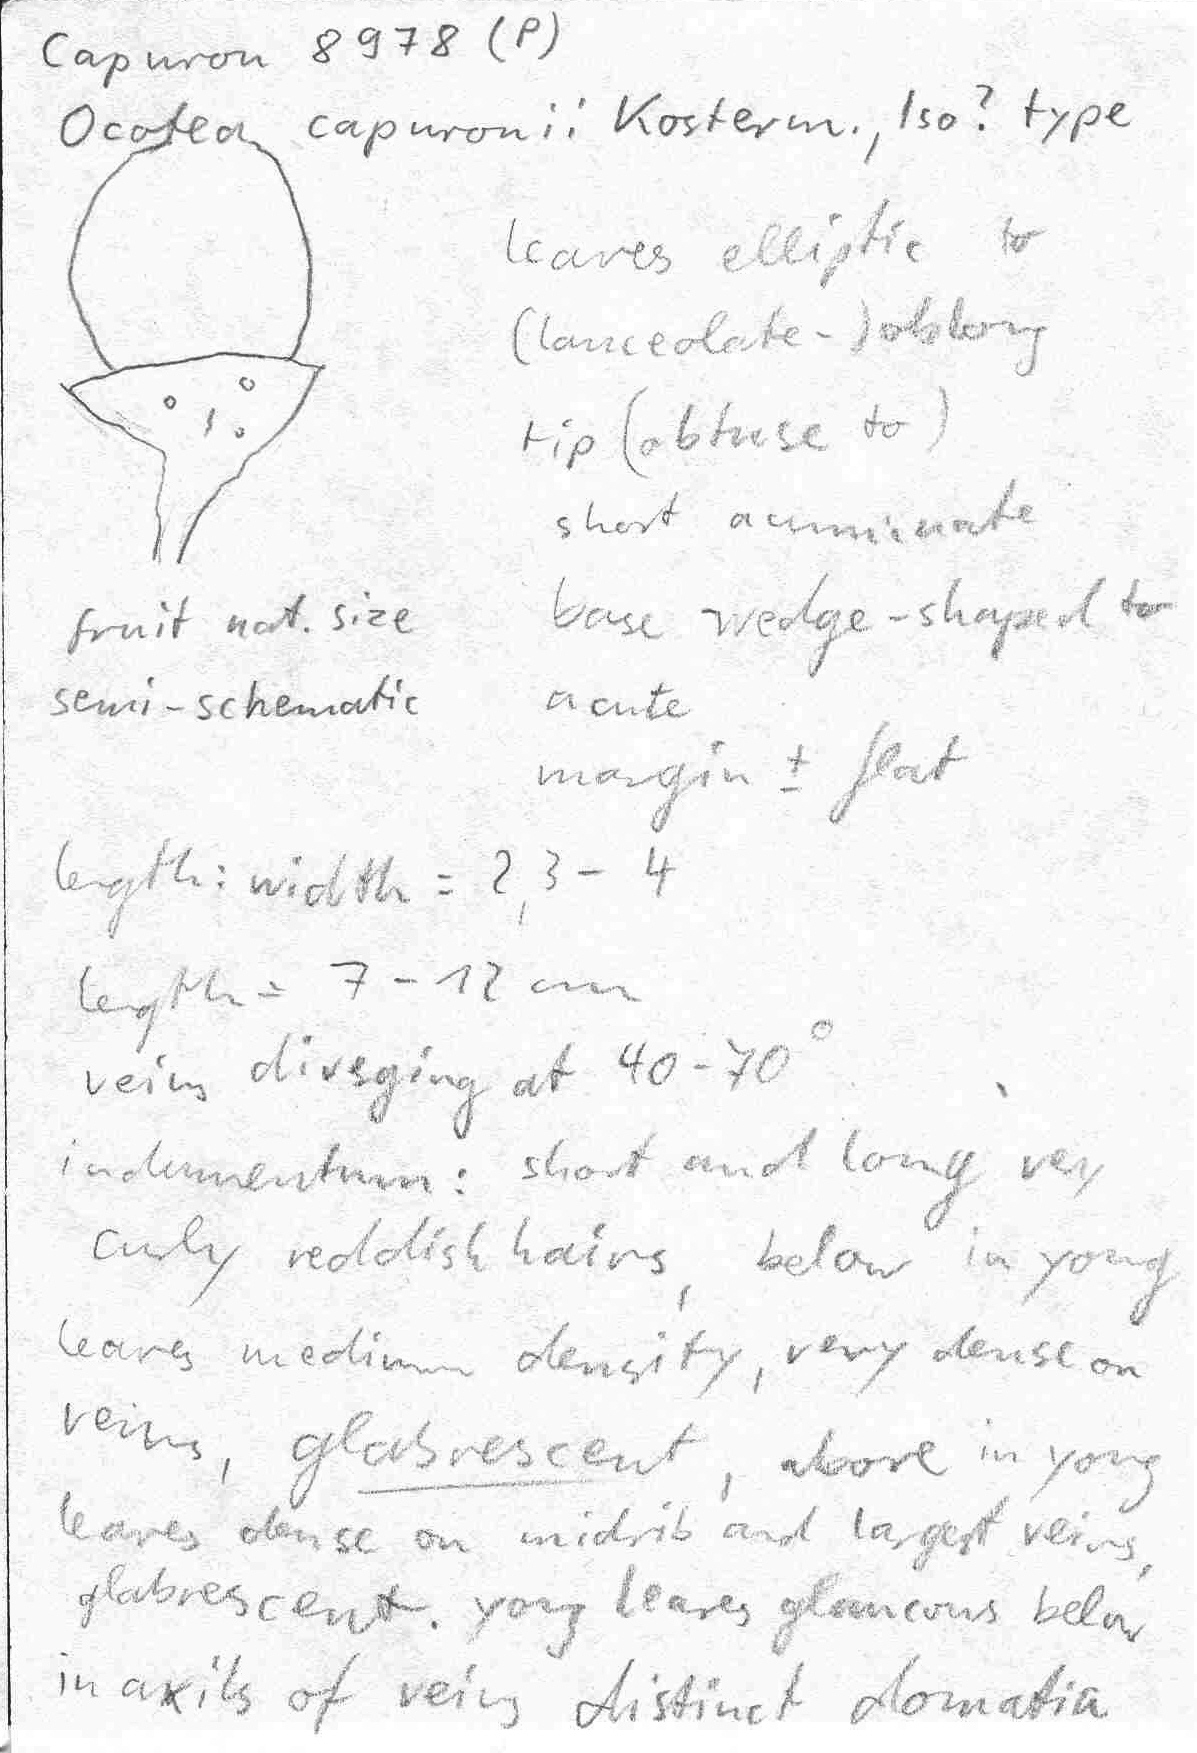 Capuron 8978 (P)
Ocotea capuronii Kosterm., Iso? type
leaves elliptic to
(lanceolate-)oblong
tip (obtuse to)
short acuminate
fruit nat. size
semi-schematic
base wedge-shaped to
acute
margin ± flat
length: width = 2,3 - 4
length = 7 - 12 cm
veins diverging at 40-70°
indumentum: short and long very
curly reddish hairs, below in young
leaves medium density, very dense on
veins, glabrescent, above in young
leaves dense on midrib and largest veins,
glabrescent. young leaves glaucous below
in axils of veins distinct domatia